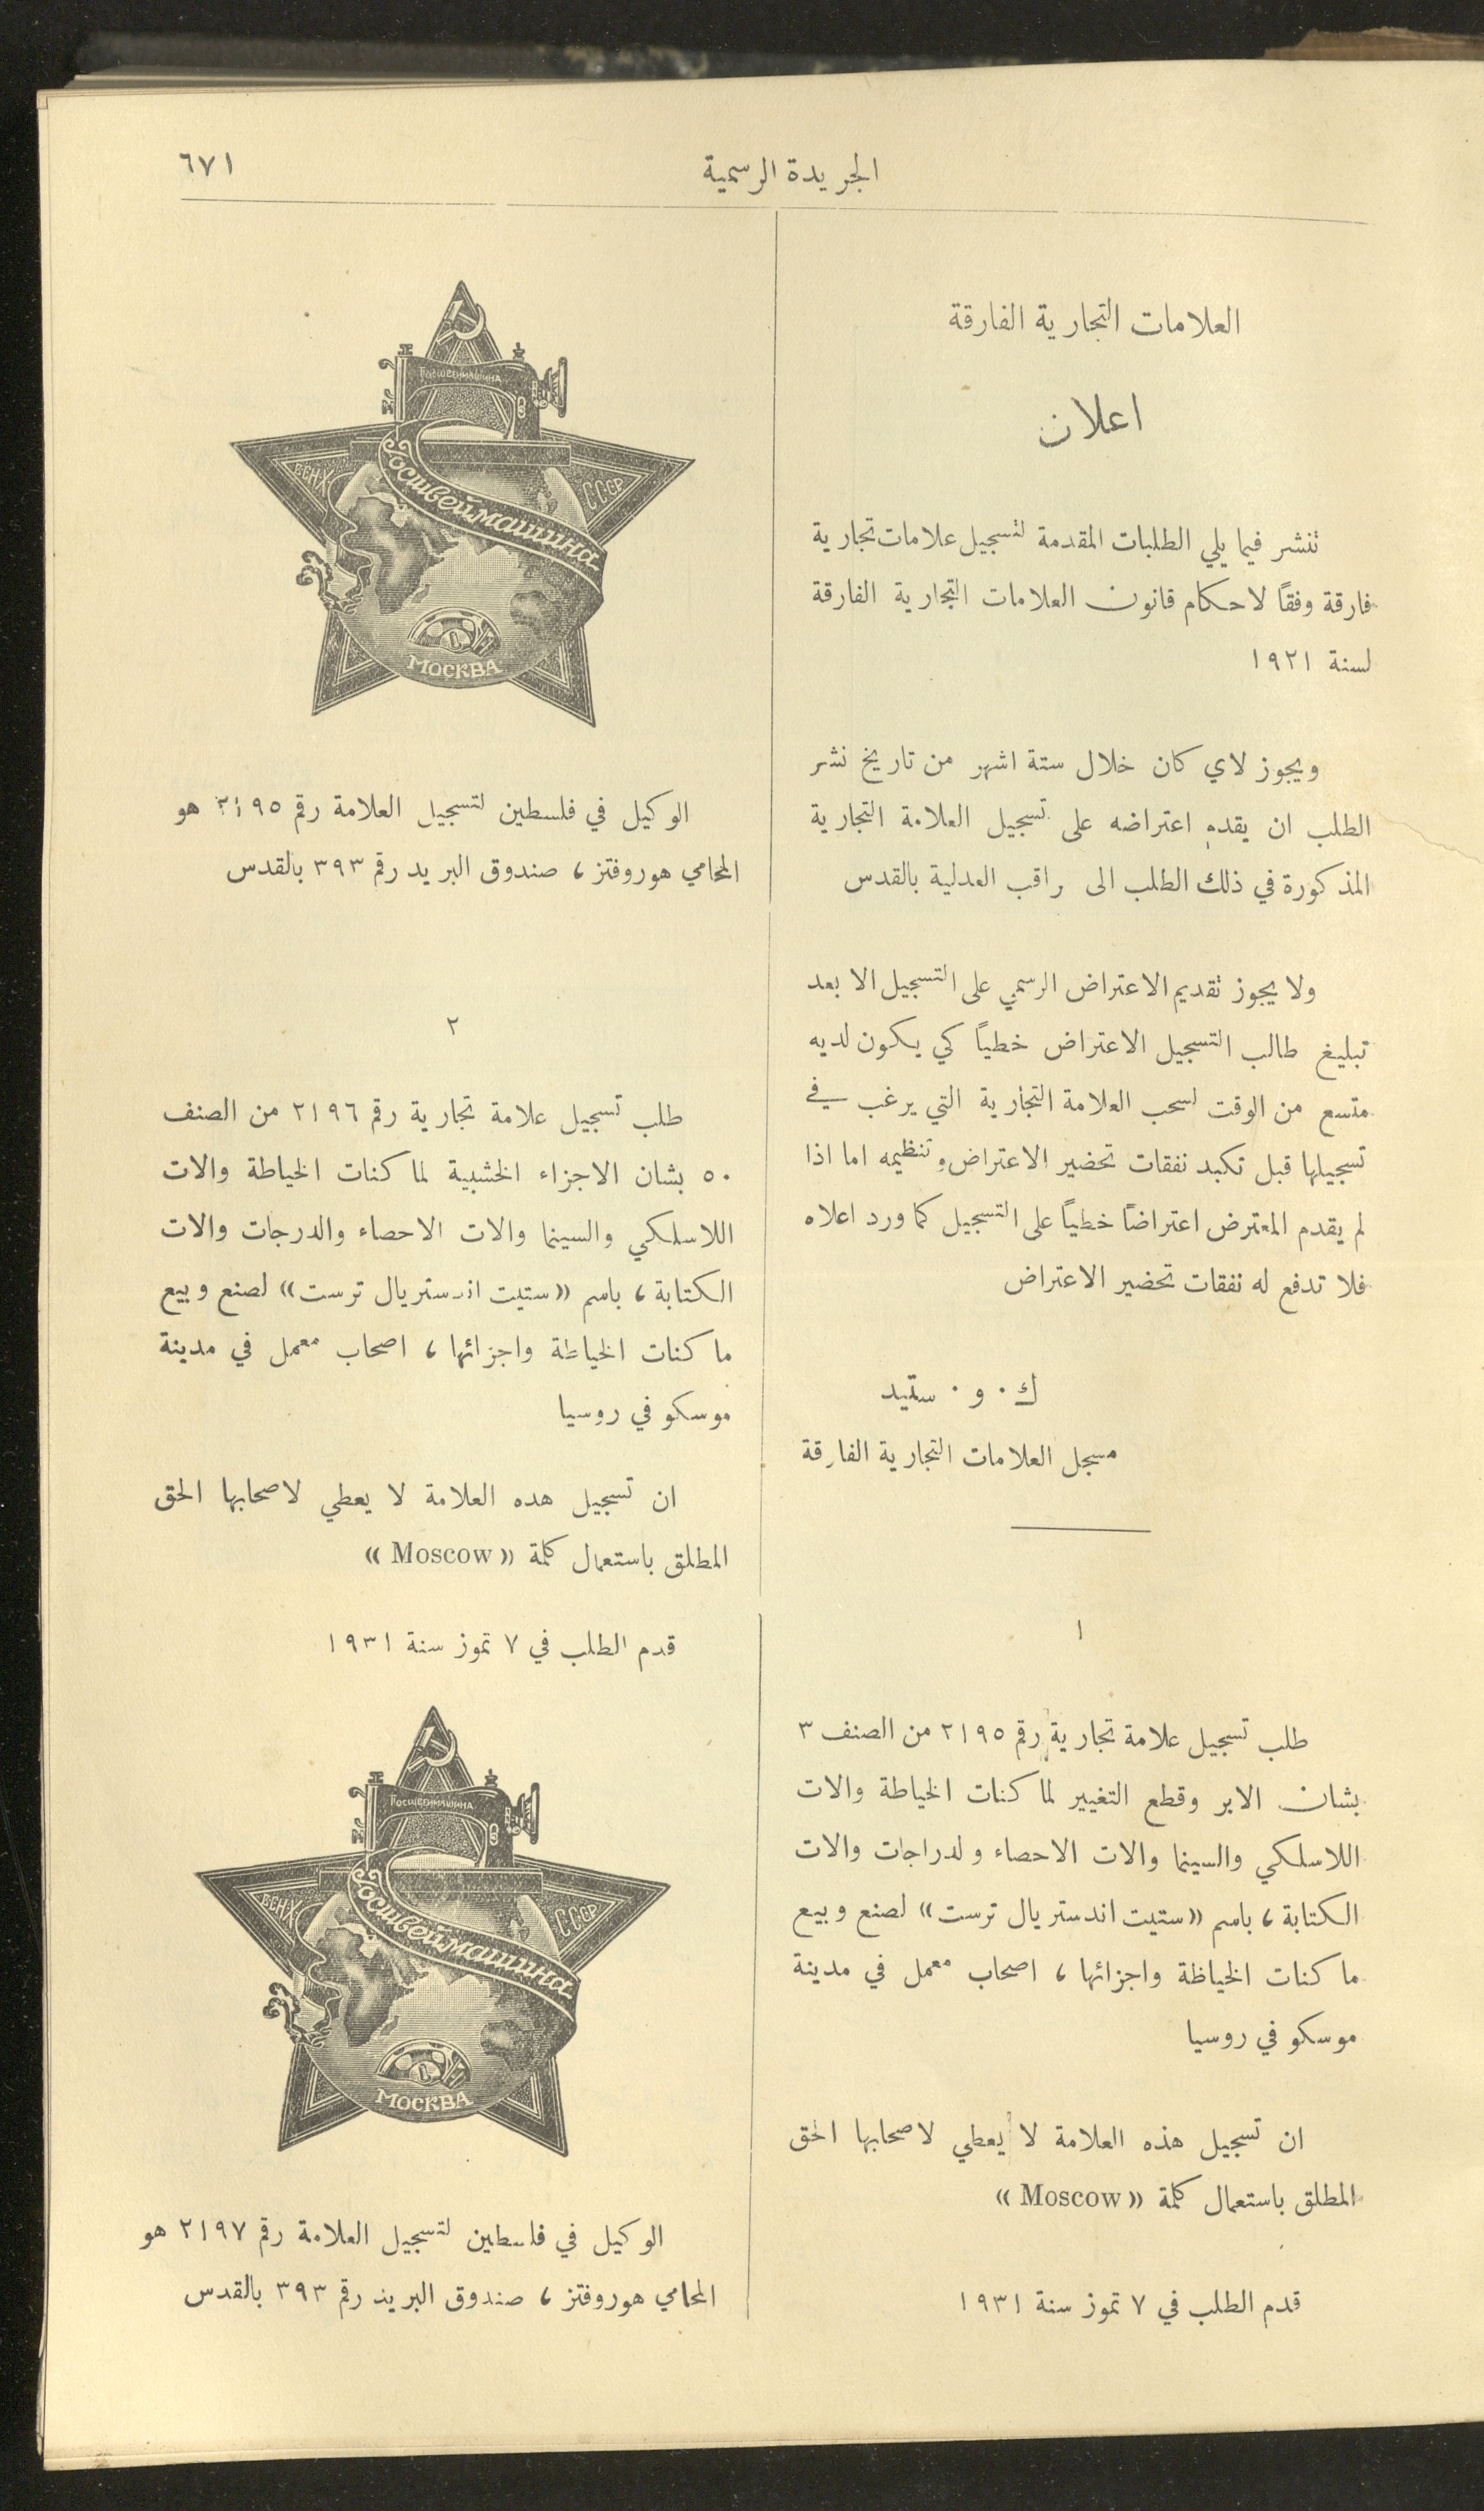 الجريدة الرسمية
٦٧١
العلامات التجارية الفارقة
اعلان
تنشر فيما يلي الطلبات المقدمة لتسجيل علامات تجارية
فارقة وفقاً لاحكام قانون العلامات التجارية الفارقة
لسنة ١٩٢١
ويجوز لاي كان خلال ستة اشهر من تاريخ نشر
الطلب ان يقدم اعتراضه على تسجيل العلامة التجارية
المذكورة في ذلك الطلب الى راقب العدلية بالقدس
ولا يجوز تقديم الاعتراض الرسمي على التسجيل الا بعد
تبليغ طالب التسجيل الاعتراض خطياً كي يكون لديه
متسع من الوقت لسحب العلامة التجارية التي يرغب في
تسجيلها قبل تكبد نفقات تحضير الاعتراض وتنظيمه اما اذا
لم يقدم المعترض اعتراضاً خطياً على التسجيل كما ورد اعلاه
فلا تدفع له نفقات تحضير الاعتراض
ك. و. ستيد
مسجل العلامات التجارية الفارقة
١
طلب تسجيل علامة تجارية رقم ٢١٩٥ من الصنف ٣
بشان الابر وقطع التغيير لماكنات الخياطة والات
اللاسلكي والسينما والات الاحصاء ولدراجات والات
الكتابة، باسم «ستيت اندستريال ترست» لصنع وبيع
ماكنات الخياظة واجزائها، اصحاب معمل في مدينة
موسكو في روسيا
ان تسجيل هذه العلامة لا يعطي لاصحابها الحق
المطلق باستعمال كلمة «Moscow»
قدم الطلب في ٧ تموز سنة ١٩٣١
ГОСШВЕЙМАШИНА
ВСНХ
СССР
Госшвеймашина
МОСКВА
الوكيل في فلسطين لتسجيل العلامة رقم ٢١٩٥ هو
المحامي هوروفتز، صندوق البريد رقم ٣٩٣ بالقدس
٢
طلب تسجيل علامة تجارية رقم ٢١٩٦ من الصنف
٥٠ بشان الاجزاء الخشبية لماكنات الخياطة والات
اللاسلكي والسينما والات الاحصاء والدرجات والات
الكتابة، باسم «ستيت اندستريال ترست» لصنع وبيع
ماكنات الخياطة واجزائها، اصحاب معمل في مدينة
موسكو في روسيا
ان تسجيل هده العلامة لا يعطي لاصحابها الحق
المطلق باستعمال كلمة «Moscow»
قدم الطلب في ٧ تموز سنة ١٩٣١
ГОСШВЕЙМАШИНА
ВСНХ
СССР
Госшвеймашина
МОСКВА
الوكيل في فلسطين لتسجيل العلامة رقم ٢١٩٧ هو
المحامي هوروفتز، صندوق البريد رقم ٣٩٣ بالقدس